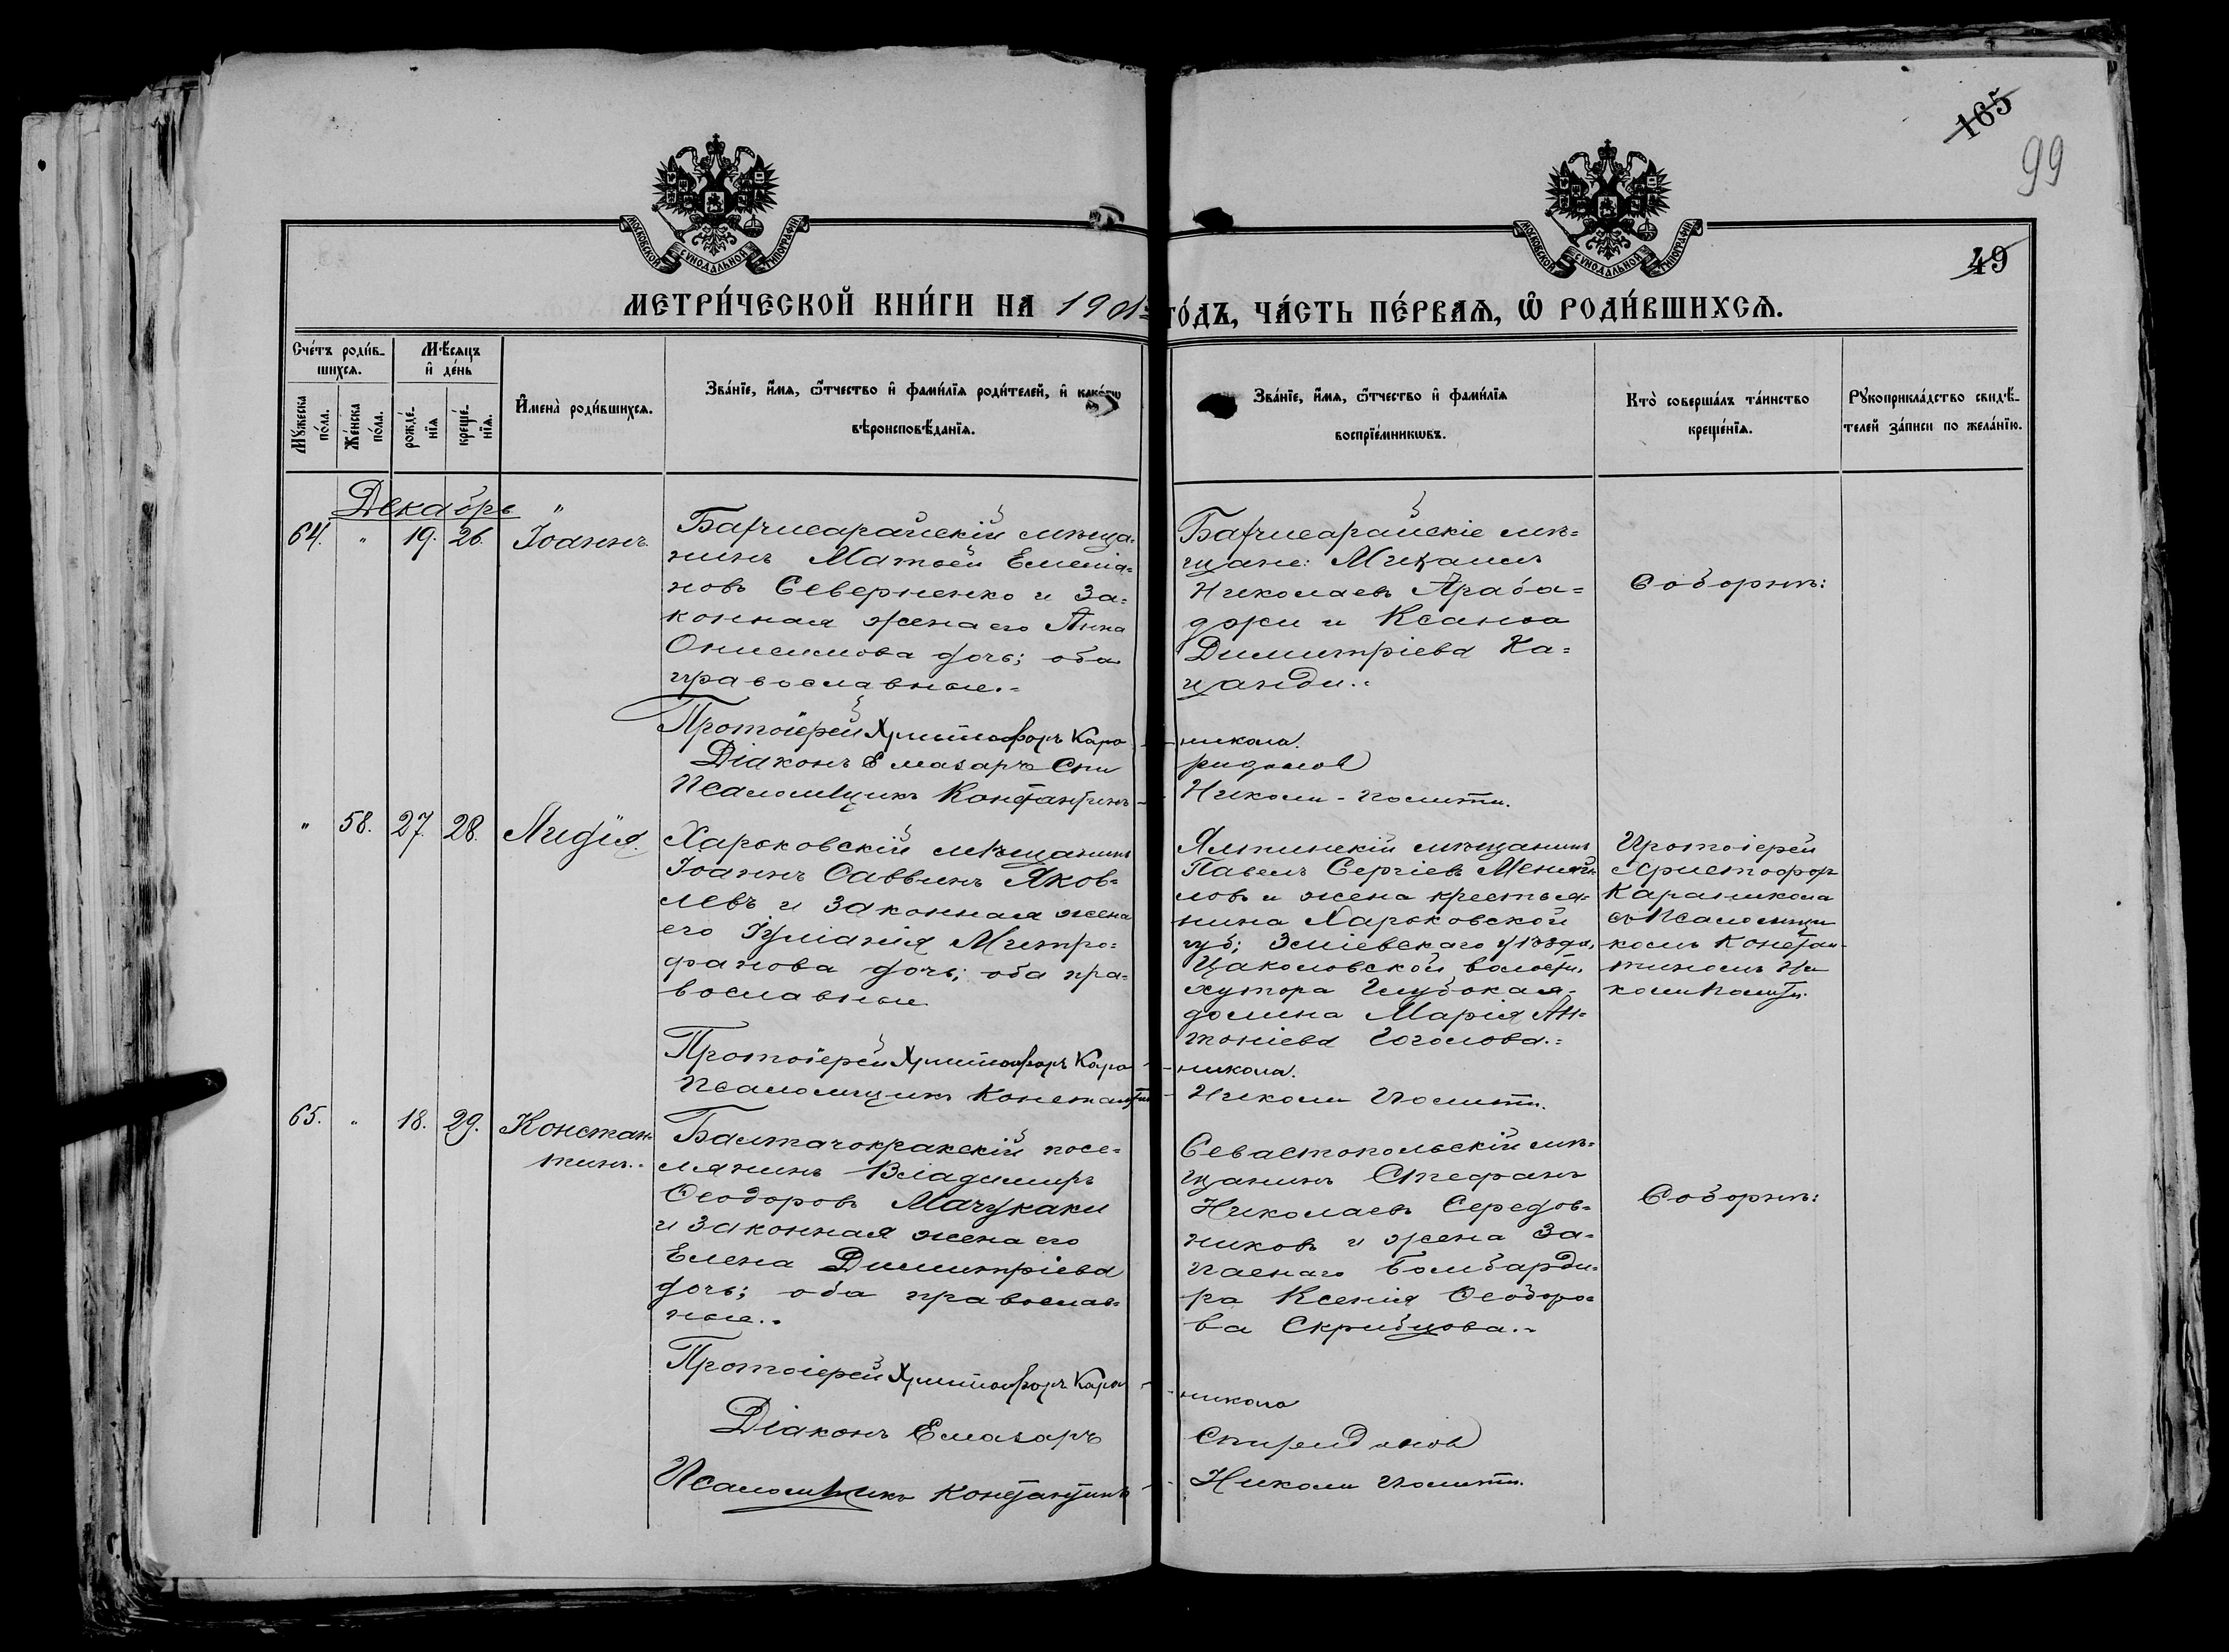 165
99
49
МОСКОВСКОЙ СУНОДАЛЬНОЙ ТИПОГРАФIИ
МОСКОВСКОЙ СУНОДАЛЬНОЙ ТИПОГРАФIИ
МЕТРИ́ЧЕСКОЙ КНИ́ГИ НА 1901 ГО́ДЪ, ЧА́СТЬ ПЕ́РВАѦ, Ѡ҆ РОДИ́ВШИХСѦ.
Сче́тъ роди́в-
шихсѧ.
Мѣ́сѧцъ
и҆ де́нь
Му́жеска
по́ла.
Же́нска
по́ла.
рожде́-
нїѧ
креще́-
нїѧ.
И҆мена̀ роди́вшихсѧ.
Зва́нїе, и҆́мѧ, ѻ҆́тчество и҆ фами́лїѧ роди́телей, и҆ како́гѡ
вѣроисповѣ́данїѧ.
Зва́нїе, и҆́мѧ, ѻ҆́тчество и҆ фами́лїѧ
воспрїе́мникѡвъ.
Кто̀ соверша́лъ та́инство
креще́нїѧ.
Рꙋкоприкла́дство свидѣ́-
телей за́писи по жела́нїю.
Декабрь "
64. " 19. 26. Іоаннъ.
Бахчисарайскій мѣща-
нинъ Матѳей Емелiа-
новъ Северненко и за-
конная жена его Анна
Онисимова дочь; оба
православные.
Бахчисарайскіе мѣ-
щане: Михаилъ
Николаевъ Араба-
джи и Ксанѳа
Димитріева Ка-
цанди.
Соборнѣ:
Протоіерей Христофоръ Кара-никола.
Діаконъ Елазаръ Спиридонов
Псаломщикъ Константинъ Николи-Полити.
" 58. 27. 28. Лидія.
Харьковскій мѣщанинъ
Іоаннъ Саввинъ Яков-
левъ и законная жена
его Іуліанія Митро-
фанова дочь; оба пра-
вославные
Ялтинскій мѣщанинъ
Павелъ Сергіевъ
ловъ и жена крестья-
нина Харьковской
губ; Зміевскаго уѣзда,
волости,
хутора Глубокая-
долина Марія Ан-
тоніева Гоголова.
Протоіерей
Христофор
Караникола
съ Псаломщи
комъ Констан-
тиномъ Ни
коли Полити.
Протоіерей Христофоръ Кара-никола.
Псаломщикъ Константинъ Николи Полити.
65. " 18. 29. Констан-
тинъ.
Балтачокракскій посе-
лянинъ Владимиръ
Ѳеодоровъ Мачукаки
и законная жена его
Елена Димитріева
дочь; оба православ-
ные.
Севастопольскій мѣ-
щанинъ Стефанъ
Николаевъ Середов-
никовъ и жена за-
паснаго бомбарди-
ра Ксенія Ѳеодоро-
ва Скрибцова.
Соборнѣ:
Протоіерей Христофоръ Кара-никола
Діаконъ Елазаръ Спиридонов
Псаломщикъ Константинъ Николи Полити.